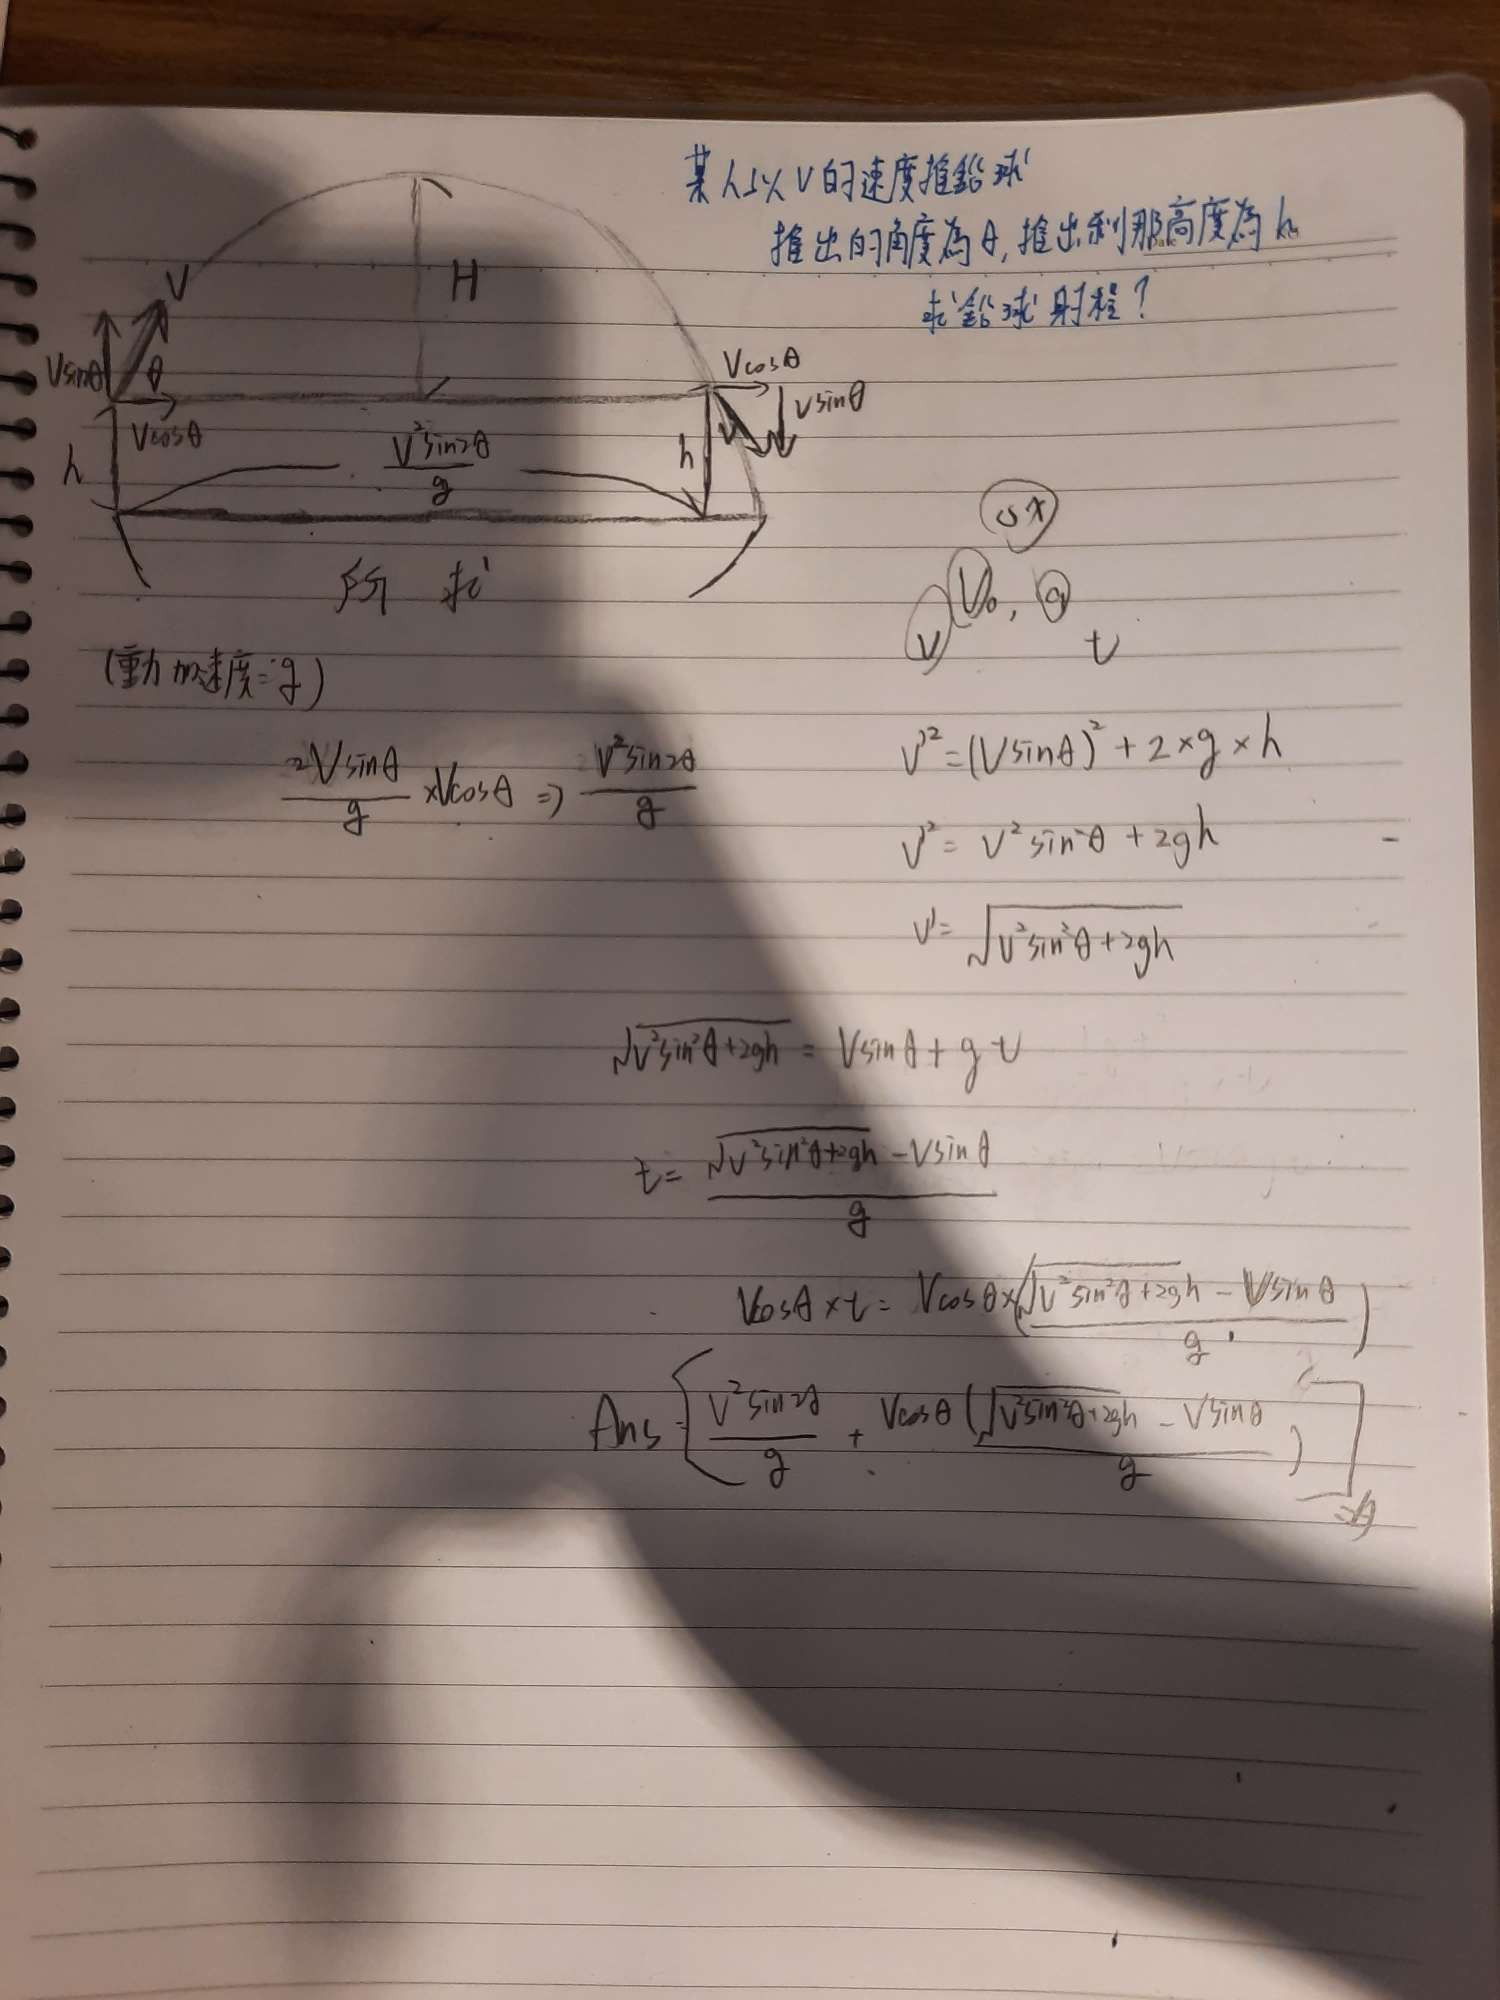 某人以V的速度推鉛球
推出的角度為θ,推出剎那高度為h
求鉛球射程?
H
V
Vsinθ
θ
Vcosθ
Vcosθ
Vsinθ
V
h
h
V²sin2θ/g
所求
(重力加速度=g)
V₀, a
V t
2Vsinθ/g ×Vcosθ ⇒ V²sin2θ/g
V'²=(Vsinθ)²+2×g×h
V'²= V²sin²θ+2gh
V'= √(V²sin²θ+2gh)
√(V²sin²θ+2gh) = Vsinθ+gt
t= (√(V²sin²θ+2gh) -Vsinθ)/g
Vcosθ×t= Vcosθ×((√(V²sin²θ+2gh) - Vsinθ)/g)
Ans=[V²sin2θ/g + Vcosθ((√(V²sin²θ+2gh) - Vsinθ)/g)]